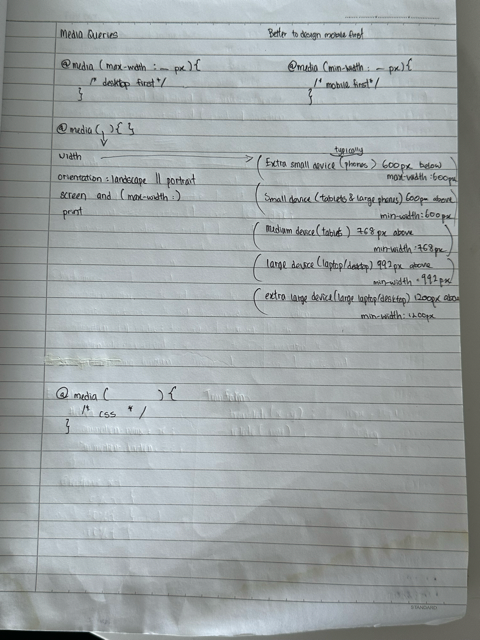 Media Queries
Better to design mobile first
@media (max-width : _ px) {
/* desktop first */
}
@media (min-width : _ px) {
/* mobile first */
}
@media ( ) { }
width
orientation : landscape || portrait
screen and (max-width :)
print
typically
Extra small device (phones) 600px below
max-width : 600px
Small device (tablets & large phones) 600px above
min-width : 600px
medium device (tablets) 768 px above
min-width : 768px
large device (laptop/desktop) 992px above
min-width : 992px
extra large device (large laptop/desktop) 1200px above
min-width : 1200px
@ media ( ) {
/* css */
}
STANDARD